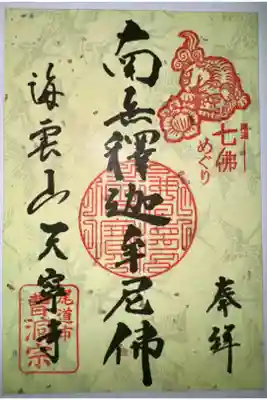 奉拝
七佛
めぐり
南無釋迦牟尼佛
海雲山天寧寺
尾道市
曹洞宗